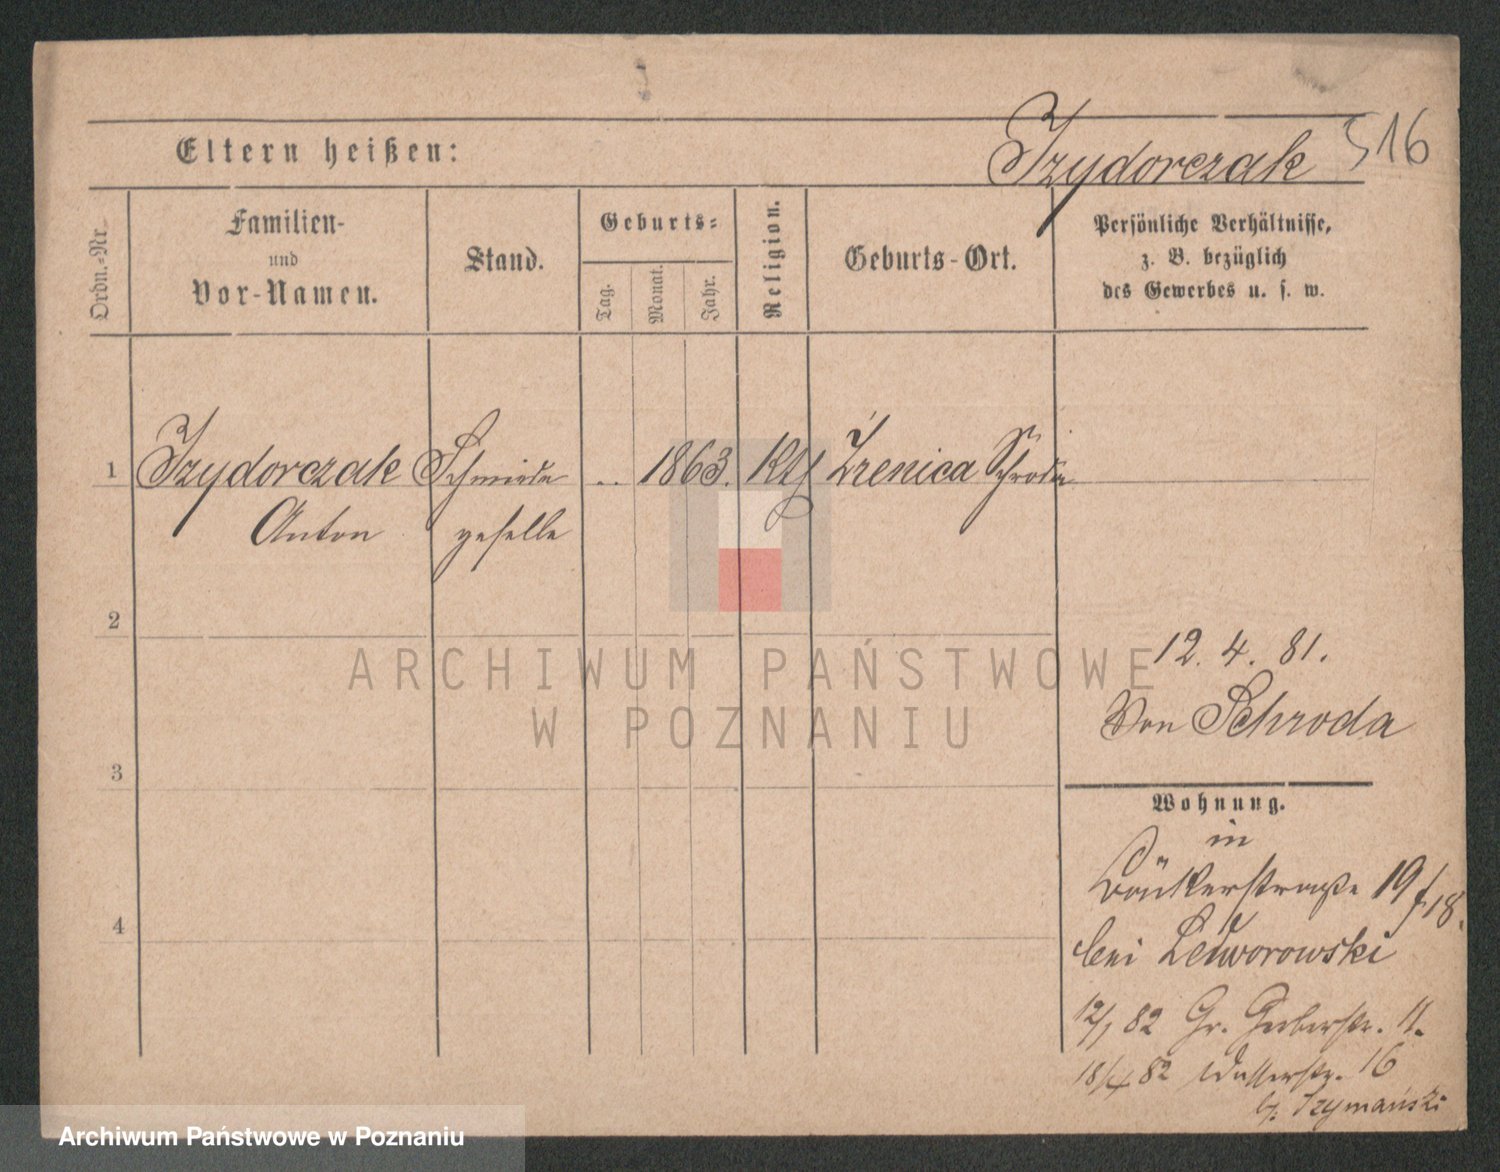 Izydorczak 516
Eltern heißen:
Ordn.-Nr.
Familien-
und
Vor-Namen.
Stand.
Geburts-
Tag.
Monat.
Jahr.
Religion.
Geburts-Ort.
Persönliche Verhältnisse,
z. B. bezüglich
des Gewerbes u. s. w.
1 Izydorczak Schmiede .. 1863. Kth Źrenica Schroda
Anton geselle
2
12. 4. 81.
Von Schroda
3
Wohnung.
in
Bäckerstraße 19 / 18.
4
bei Leworowski
12/1 82 Gr. Gerberstr. 11.
18/4 82 Wasserstr. 16
b. Szymański
ARCHIWUM PAŃSTWOWE
W POZNANIU
Archiwum Państwowe w Poznaniu